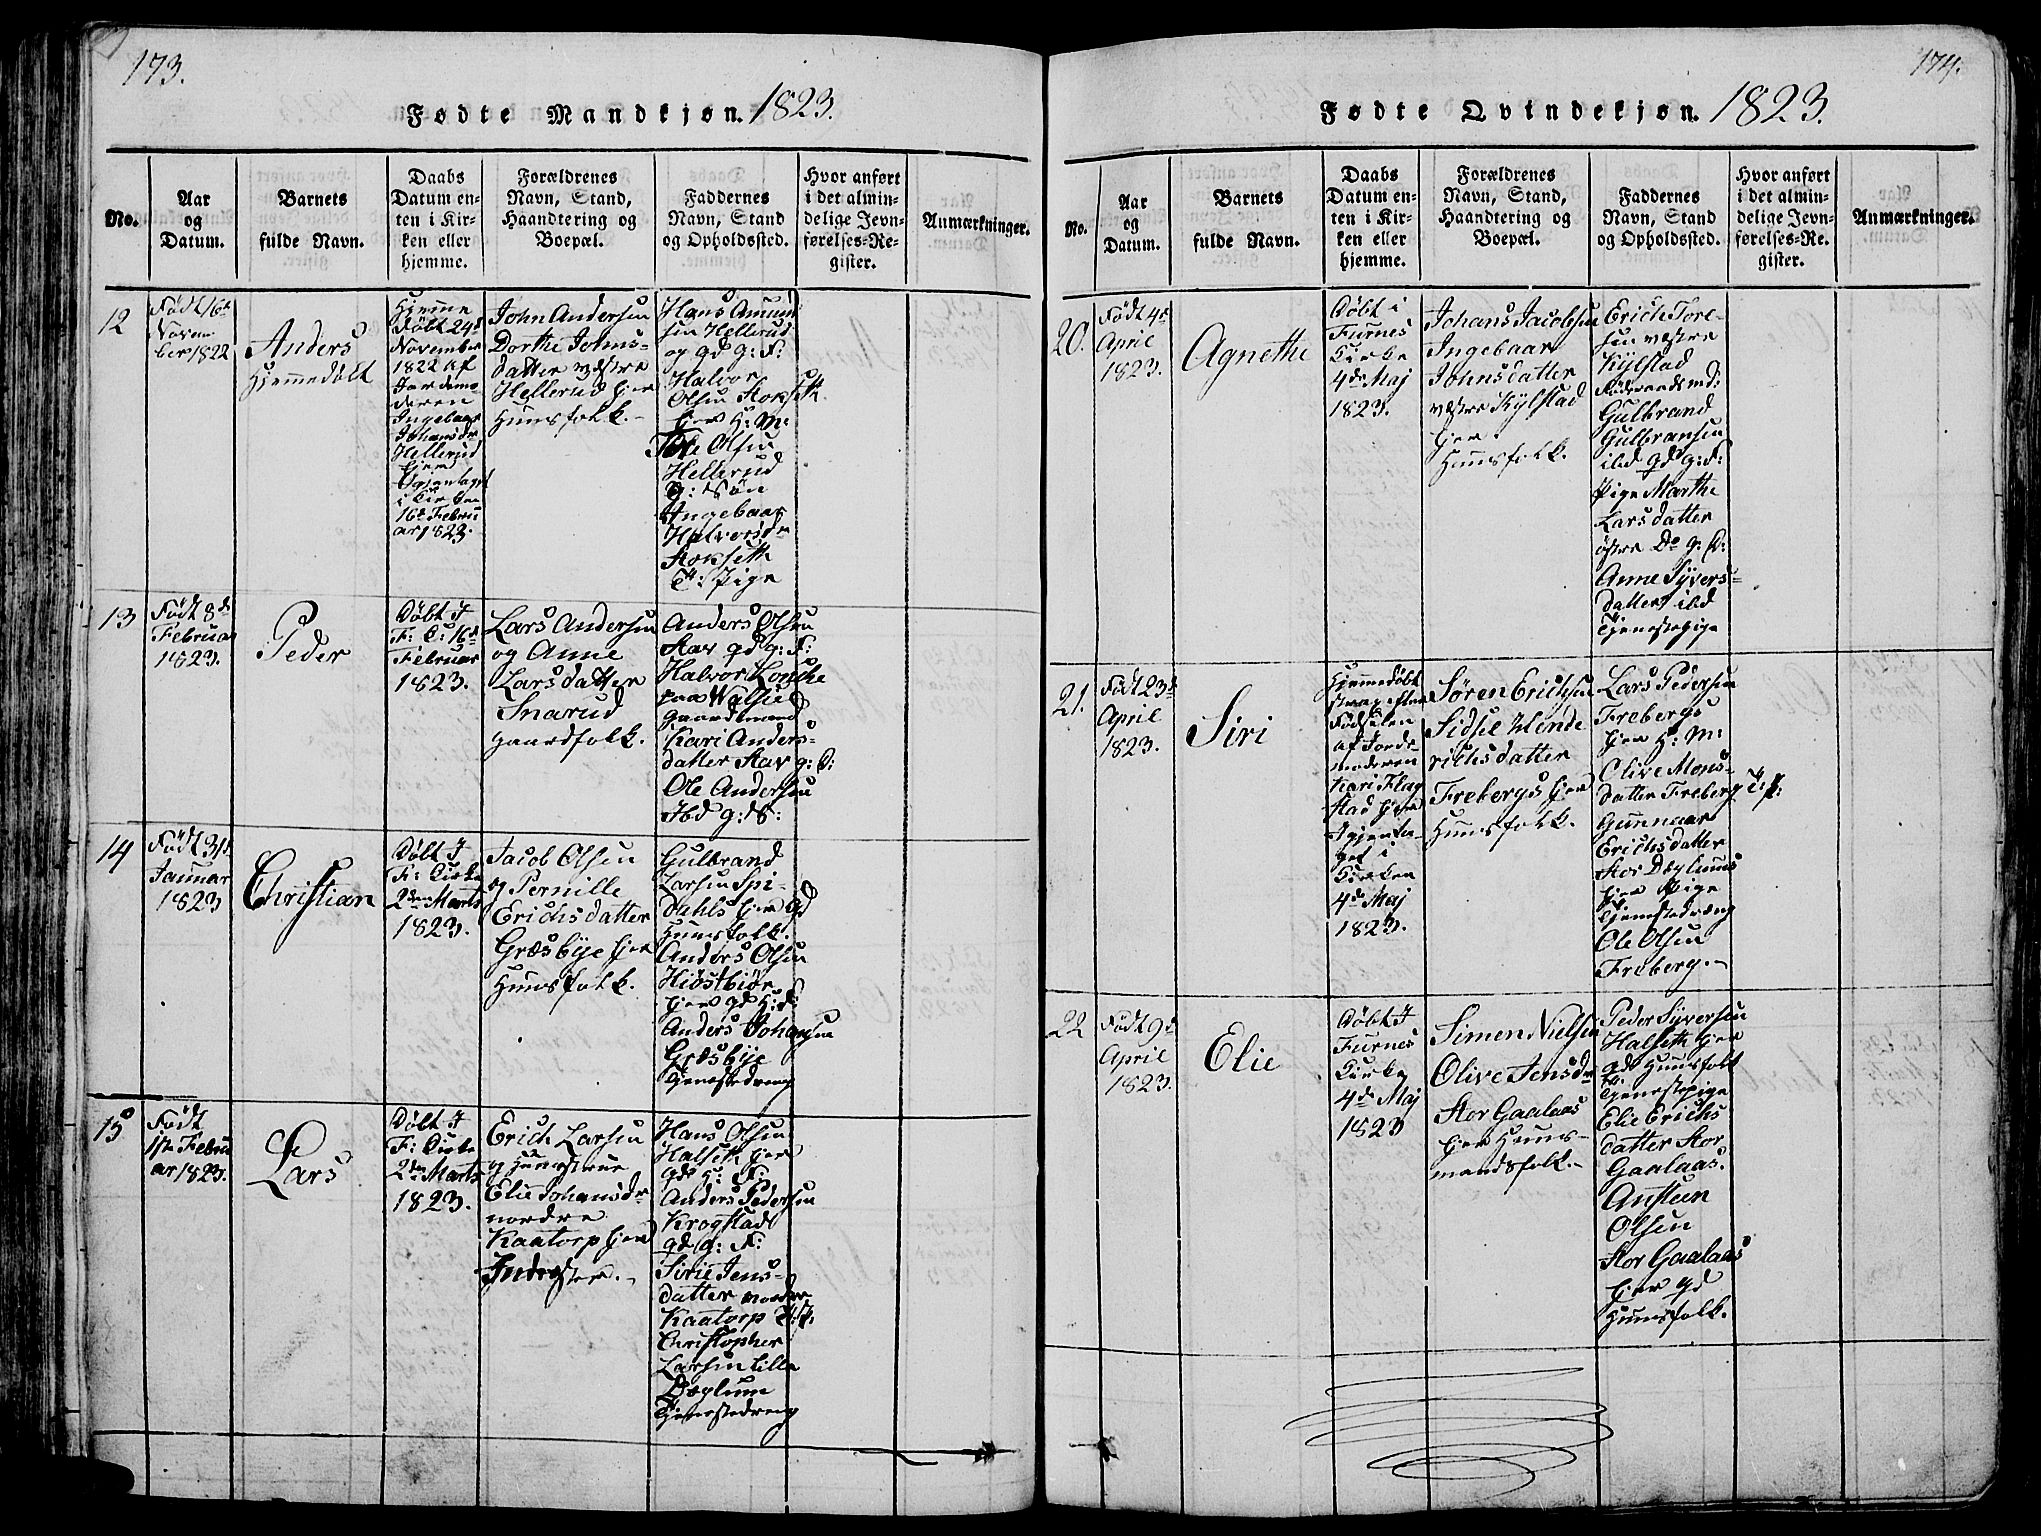 173.
Fødte Mandkjøn. 1823.
No.
Aar
og
Datum.
Barnets
fulde Navn.
Daabs
Datum en-
ten i Kir-
ken eller
hjemme.
Forældrenes
Navn, Stand,
Haandtering og
Boepæl.
Faddernes
Navn, Stand
og Opholdssted.
Hvor anført
i det almin-
delige Jevn-
førelses-Re-
gister.
Anmærkninger.
12
Født 16de
Novem
ber 1822
Anders
Hjemmedøbt
Hjemme
døbt 24de
November
1822 af
Jordemo
deren
Ingebaar
Johansdr
Hellerud
hjer
Igjentaget
i Kirken
16de Febru
ar 1823.
John Andersen
Dorthe Johns-
datter vestre
Hellerud hjer
Huusfolk.
Hans Amund
sen Hellerud
og gd g: F:
Halvor
Olsen Stokseth
hjer H: M:
Ole Olsen
Hellerud
g: Søn
Ingebaar
Halvorsdr
Stokseth
T: Pige
13
Født 8de
Februar
1823.
Peder
Døbt I
F: K: 16de
Februar
1823.
Lars Andersen
og Anne
Larsdatter
Snarud
gaardfolk.
Anders Olsen
Stav gd g: F:
Halvor
gaardmand
Kari Anders-
datter Stav g: D:
Ole Andersen
Ibd g: S:
14
Født 31de
Januar
1823
Christian
Døbt I
F: Kirke
2den Marts
1823.
Jacob Olsen
og Pernille
Erichsdatter
Græsbye hjer
Huusfolk.
Gulbrand
Larsen Spi-
dahls hjer gd
Huusfolk.
Anders Olsen
Hiøstbiør
hjer gd H: F:
Anders Johansen
Græsbye
Tjenestedreng
15
Født
1ste Febru
ar 1823.
Lars
Døbt I
F: Kirke
2den Marts
1823.
Erich Larsen
og Hustrue
Elie Johansdr
nordre
Kaatorp hjer
Inderster.
Hans Olsen
Halseth hjer
gd H: F:
Anders Pedersen
Krogstad
gd g: F:
Sirie Jens-
datter nordre
Kaatorp T: P:
Christopher
Larsen Lille
Dæglum
Tjenestedreng
174.
Fødte Qvindekjøn. 1823.
No.
Aar
og
Datum.
Barnets
fulde Navn.
Daabs
Datum en-
ten i Kir-
ken eller
hjemme.
Forældrenes
Navn, Stand,
Haandtering og
Boepæl.
Faddernes
Navn, Stand
og Opholdssted.
Hvor anført
i det almin-
delige Jevn-
førelses-Re-
gister.
Anmærkninger.
20.
Født 4de
April
1823.
Agnethe
Døbt i
Furnes
Kirke
4de Maj
1823.
Johans Jacobsen
Ingebaar
Johnsdatter
vestre Kylstad
hjer
Huusfolk.
Erich Tore-
sen vestre
Kylstad
Føderaadsmd:
Gulbrand
Gulbransen
ibd gd g: F:
Pige Marthe
Larsdatter
østre Do g: D:
Anne Syvers-
datter ibd
Tjenestepige
21.
Født 23de
April
1823.
Siri
Hjemmedøbt
strax efter
Fødselen
af Jorde-
moderen
Kari Flag
stad hjer
Igjenta-
get i
Kirken
4de Maj
1823.
Søren Erichsen
Sidsel Hende
richsdatter
Frebergs hjer
Huusfolk.
Lars Pedersen
Frebergs
hjer H: M:
Olive Mons-
datter Freberg T: P:
Gunnaar
Erichsdatter
Stor Dæglums
hjer Pige
Tjenestedræng
Ole Olsen
Freberg.
22
Født 9de
April
1823.
Elie
Døbt I
Furnes
Kirke
4de Maj
1823
Simen Nielsen
Olive Jensdr
Stor Gaalaas
hjer Huus-
mandsfolk.
Peder Syversen
Halseth hjer
gd Huusfolk
Tjenestepige
Elie Erichs
datter Stor
Gaalaas.
Ansteen
Olsen
Stor Gaalaas
hjer gd
Huusfolk.